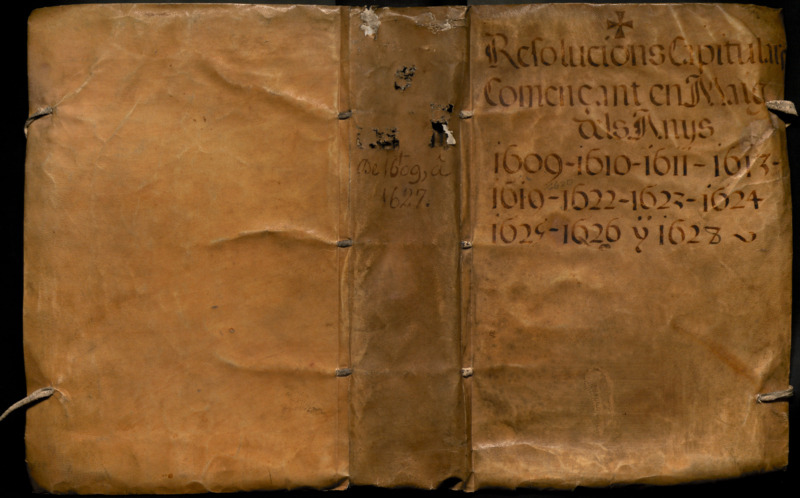 De 1609, à
1627.
Resolucions Capitulars
Comensant en Maig
dels Anys
1609-1610-1611-1613-
1610-1622-1623-1624
1625-1626 ÿ 1628